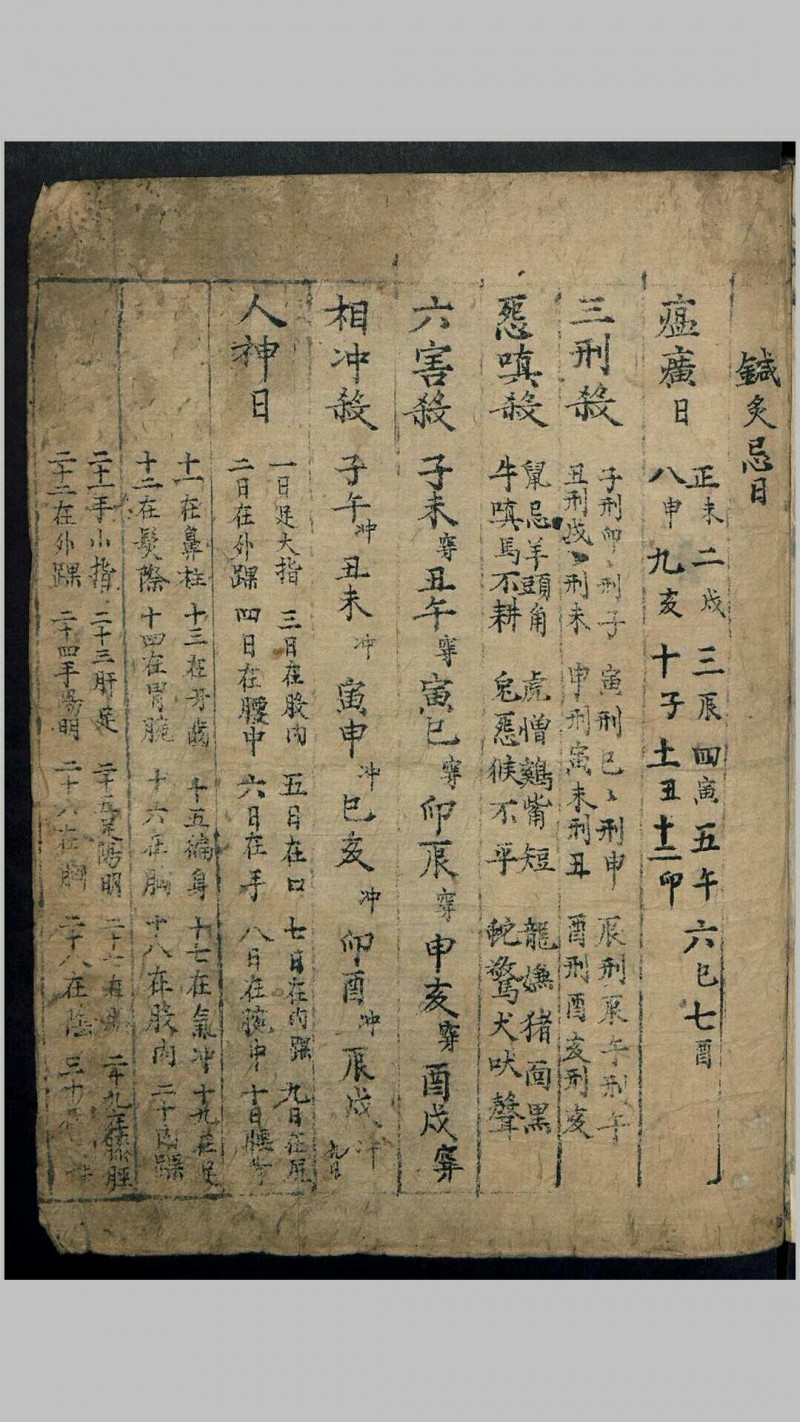 鍼灸忌日
瘟㾮日
正未 二戌 三辰 四寅 五午 六巳 七酉
八申 九亥 十子 土丑 十二卯
三刑殺
子刑卯〻刑子 寅刑巳〻刑申 辰刑辰午刑午
丑刑戌〻刑未 申刑寅未刑丑 酉刑酉亥刑亥
惡嗔殺
鼠忌羊頭角 虎憎鷄嘴短 龍嫌猪面黑
牛嗔馬不耕 兔惡猴不平 蛇驚犬吠聲
六害殺
子未穿 丑午穿 寅巳穿 卯辰穿 申亥穿 酉戌穿
相冲殺
子午冲 丑未冲 寅申冲 巳亥冲 卯酉冲 辰戌冲
人神日
一日足大指 三日在股内 五日在口 七日在内踝 九日在尻
二日在外踝 四日在腰中 六日在手 八日在腕中 十日腰
十一在鼻柱 十三在牙齒 十五徧身 十七在氣冲 十九在足
十二在髮際 十四在胃腕 十六在胸 十八在股内 二十内踝
二十一手小指 二十三肝足 二十五足陽明 二十七 二十九在膝脛
二十二在外踝 二十四手陽明 二十六在胸 二十八在陰 三十